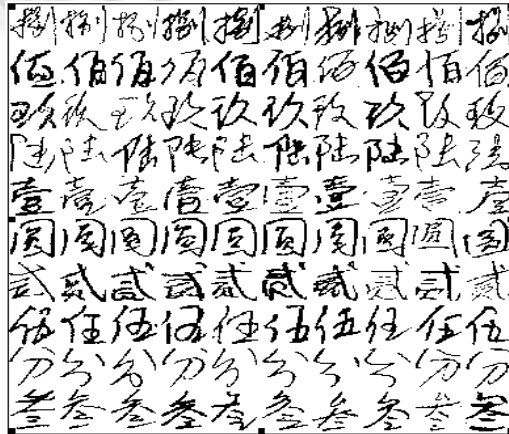 捌捌捌捌捌捌捌捌捌捌
佰佰佰佰佰佰佰佰佰佰
玖玖玖玖玖玖玖玖玖玖
陆陆陆陆陆陆陆陆陆陆
壹壹壹壹壹壹壹壹壹壹
圆圆圆圆圆圆圆圆圆圆
贰贰贰贰贰贰贰贰贰贰
伍伍伍伍伍伍伍伍伍伍
分分分分分分分分分分
叁叁叁叁叁叁叁叁叁叁